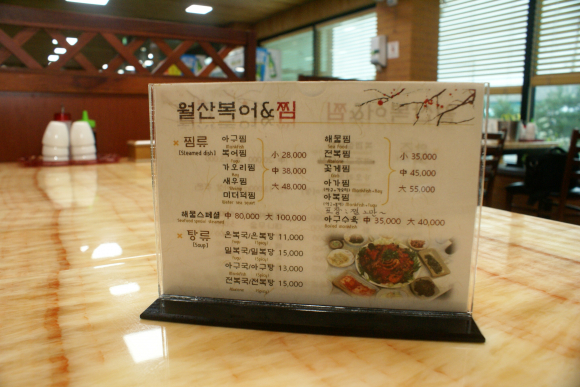 월산복어&찜
찜류
(Steamed dish)
아구찜
복어찜
가오리찜
새우찜
미더덕찜
小 28,000
中 38,000
大 48,000
해물찜
전복찜
꽃게찜
아가찜
아복찜
小 35,000
中 45,000
大 55,000
해물스페셜 中 80,000 大 100,000
아구수육 中 35,000 大 40,000
탕류
(Soup)
은복국/은복탕 11,000
밀복국/밀복탕 15,000
아구국/아구탕 13,000
전복국/전복탕 15,000